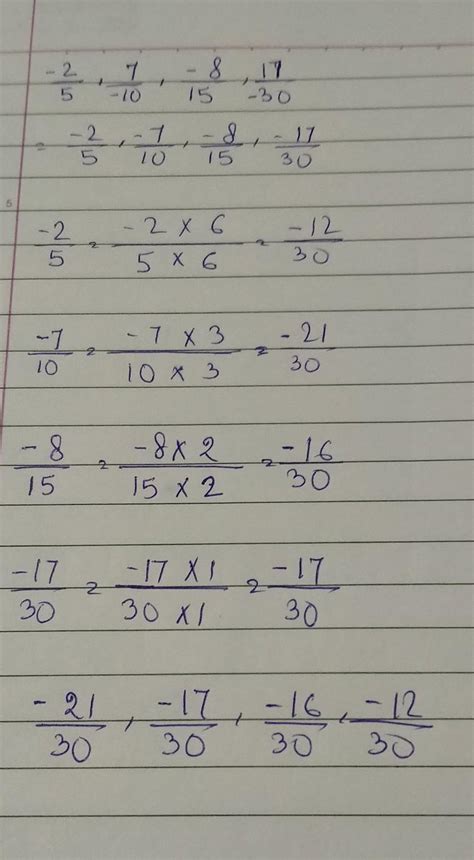 -2/5 , 7/-10 , -8/15 , 17/-30
= -2/5 , -7/10 , -8/15 , -17/30
-2/5 = -2 × 6/5 × 6 = -12/30
-7/10 = -7 × 3/10 × 3 = -21/30
-8/15 = -8 × 2/15 × 2 = -16/30
-17/30 = -17 × 1/30 × 1 = -17/30
-21/30 , -17/30 , -16/30 , -12/30